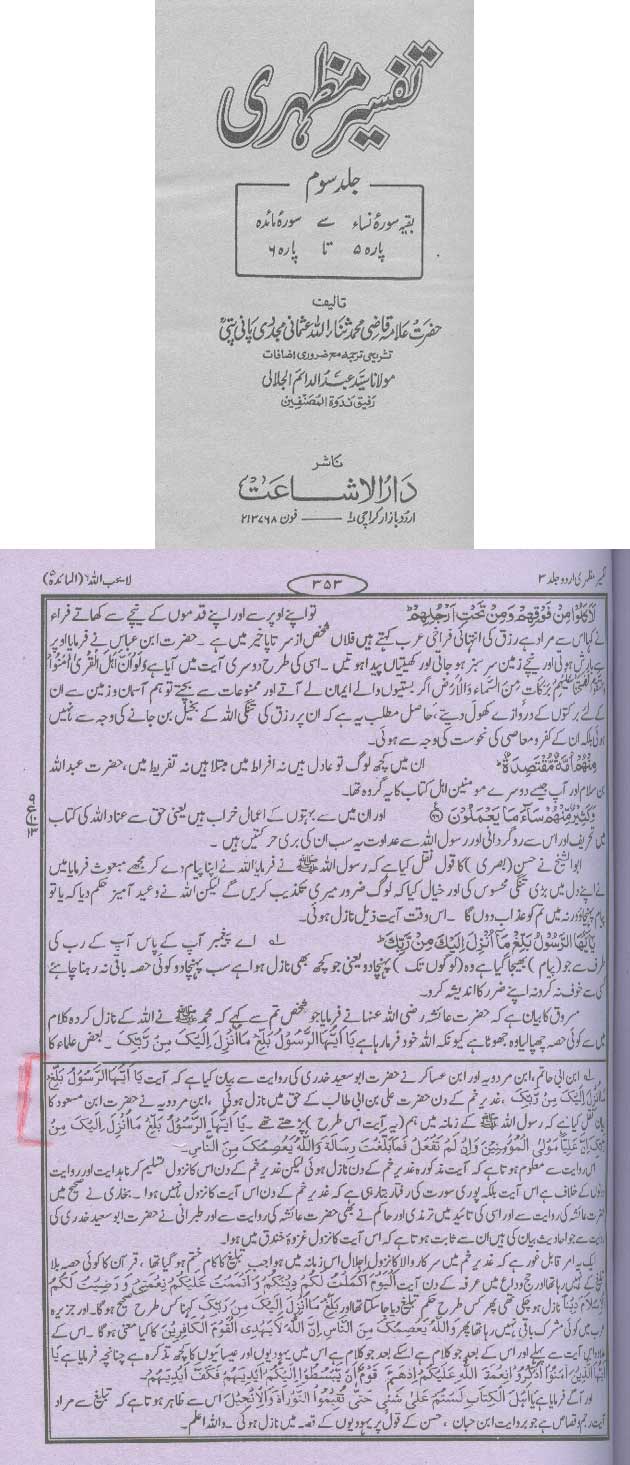 تفسیر مظہری
جلد سوم
بقیہ سورۂ نساء سے سورۂ مائدہ
پارہ ۵ تا پارہ ۶
تالیف
حضرت علامہ قاضی محمد ثناء اللہ عثمانی مجددی پانی پتیؒ
تشریحی ترجمہ مع ضروری اضافات
مولانا سید عبد الدائم الجلالی
رفیق ندوة المصنفین
ناشر
دار الاشاعت
اردو بازار کراچی ۱ — فون ۲۱۳۷۶۸
تفسیر مظہری اردو جلد ۳ ۳۵۳ لا یحب اللہ (المائدۃ)
لَاَكَلُوْا مِنْ فَوْقِهِمْ وَمِنْ تَحْتِ اَرْجُلِهِمْ تو اپنے اوپر سے اور اپنے قدموں کے نیچے سے کھاتے فراء
نے کہا اس سے مراد ہے رزق کی انتہائی فراخی عرب کہتے ہیں فلاں شخص از سر تا پا خیر میں ہے ۔ حضرت ابن عباس نے فرمایا اوپر
سے بارش ہوتی اور نیچے زمین سر سبز ہو جاتی اور کھیتیاں پیدا ہوتیں ۔ اسی کی طرح دوسری آیت میں آیا ہے وَلَوْ اَنَّ اَهْلَ الْقُرٰى اٰمَنُوْا
وَاتَّقَوْا لَفَتَحْنَا عَلَيْهِمْ بَرَكَاتٍ مِّنَ السَّمَاءِ وَالْاَرْضِ اگر بستیوں والے ایمان لے آتے اور ممنوعات سے بچتے تو ہم آسمان و زمین سے ان
کے لئے برکتوں کے دروازے کھول دیتے، حاصل مطلب یہ ہے کہ ان پر رزق کی تنگی اللہ کے بخیل بن جانے کی وجہ سے نہیں
ہوئی بلکہ ان کے کفر و معاصی کی نحوست کی وجہ سے ہوئی۔
مِنْهُمْ اُمَّةٌ مُّقْتَصِدَةٌ ان میں کچھ لوگ تو عادل ہیں نہ افراط میں مبتلا ہیں نہ تفریط میں، حضرت عبد اللہ
بن سلام اور آپ جیسے دوسرے مومنین اہل کتاب کا یہ گروہ تھا۔
وَكَثِيْرٌ مِّنْهُمْ سَاءَ مَا يَعْمَلُوْنَ ۝ اور ان میں سے بہتوں کے اعمال خراب ہیں یعنی حق سے عناد اللہ کی کتاب
میں تحریف اور اس سے روگردانی اور رسول اللہ سے عداوت یہ سب ان کی بری حرکتیں ہیں ۔
ابو الشیخ نے حسن (بصری) کا قول نقل کیا ہے کہ رسول اللہ ﷺ نے فرمایا اللہ نے اپنا پیام دے کر مجھے مبعوث فرمایا میں
نے اپنے دل میں بڑی تنگی محسوس کی اور خیال کیا کہ لوگ ضرور میری تکذیب کریں گے لیکن اللہ نے وعید آمیز حکم دیا کہ یا تو
پیام پہنچاؤ ورنہ میں تم کو عذاب دوں گا ۔ اس وقت آیت ذیل نازل ہوئی۔
يٰاَيُّهَا الرَّسُوْلُ بَلِّغْ مَا اُنْزِلَ اِلَيْكَ مِنْ رَّبِّكَ لہ اے پیغمبر آپ کے پاس آپ کے رب کی
طرف سے جو (پیام) بھیجا گیا ہے وہ (لوگوں تک) پہنچا دو یعنی جو کچھ بھی نازل ہوا ہے سب پہنچا دو کوئی حصہ باقی نہ رہنا چاہئے
کسی سے خوف نہ کرو نہ اپنے ضرر کا اندیشہ کرو۔
مسروق کا بیان ہے کہ حضرت عائشہ رضی اللہ عنہا نے فرمایا جو شخص تم سے کہے کہ محمد ﷺ نے اللہ کے نازل کردہ کلام
میں سے کوئی حصہ چھپا لیا وہ جھوٹا ہے کیونکہ اللہ خود فرما رہا ہے يَا اَيُّهَا الرَّسُوْلُ بَلِّغْ مَا اُنْزِلَ اِلَيْكَ مِنْ رَّبِّكَ ۔ بعض علماء کا
لہ ابن ابی حاتم، ابن مردویہ اور ابن عساکر نے حضرت ابو سعید خدری کی روایت سے بیان کیا ہے کہ آیت يَا اَيُّهَا الرَّسُوْلُ بَلِّغْ
مَا اُنْزِلَ اِلَيْكَ مِنْ رَّبِّكَ، غدیر خم کے دن حضرت علی بن ابی طالب کے حق میں نازل ہوئی ، ابن مردویہ نے حضرت ابن مسعود کا
بیان نقل کیا ہے کہ رسول اللہ ﷺ کے زمانہ میں ہم (یہ آیت اس طرح) پڑھتے تھے ۔ يَا اَيُّهَا الرَّسُوْلُ بَلِّغْ مَا اُنْزِلَ اِلَيْكَ مِنْ
رَّبِّكَ اِنَّ عَلِيًّا مَوْلَى الْمُؤْمِنِيْنَ وَاِنْ لَّمْ تَفْعَلْ فَمَا بَلَّغْتَ رِسَالَةً وَاللّٰهُ يَعْصِمُكَ مِنَ النَّاسِ۔
اس روایت سے معلوم ہوتا ہے کہ آیت مذکورہ غدیر خم کے دن نازل ہوئی لیکن غدیر خم کے دن اس کا نزول تسلیم کرنا ہدایت اور روایت
دونوں کے خلاف ہے اس آیت بلکہ پوری سورت کی رفتار بتا رہی ہے کہ غدیر خم کے دن اس آیت کا نزول نہیں ہوا ۔ بخاری نے صحیح میں
حضرت عائشہ کی روایت سے اور اسی کی تائید میں ترمذی اور حاکم نے بھی حضرت عائشہ کی روایت سے اور طبرانی نے حضرت ابو سعید خدری کی
روایت سے جو احادیث بیان کی ہیں ان سے ثابت ہوتا ہے کہ اس آیت کا نزول غزوۂ خندق میں ہوا۔
ایک یہ امر قابل غور ہے کہ غدیر خم میں سرکار والا کا نزول اجلال اس زمانہ میں ہوا جب تبلیغ کا کام ختم ہو گیا تھا ، قرآن کا کوئی حصہ بلا
تبلیغ کے نہیں رہا تھا اور حج وداع میں عرفہ کے دن آیت اَلْيَوْمَ اَكْمَلْتُ لَكُمْ دِيْنَكُمْ وَاَتْمَمْتُ عَلَيْكُمْ نِعْمَتِيْ وَرَضِيْتُ لَكُمُ
الْاِسْلَامَ دِيْنًا نازل ہو چکی تھی پھر کس طرح حکم تبلیغ دیا جا سکتا تھا اور بَلِّغْ مَا اُنْزِلَ اِلَيْكَ مِنْ رَّبِّكَ کہنا کس طرح صحیح ہوگا۔ اور جزیرہ
عرب میں کوئی مشرک باقی نہیں رہا تھا پھر وَاللّٰهُ يَعْصِمُكَ مِنَ النَّاسِ اِنَّ اللّٰهَ لَا يَهْدِي الْقَوْمَ الْكَافِرِيْنَ کا کیا معنی ہوگا ۔ اس کے
علاوہ اس آیت سے پہلے اور اس کے بعد جو کلام ہے اسکے بعد جو کلام ہے اس میں یہودیوں اور عیسائیوں کا کچھ تذکرہ ہے چنانچہ فرمایا ہے يَا
اَيُّهَا الَّذِيْنَ اٰمَنُوْا اذْكُرُوْا نِعْمَةَ اللّٰهِ عَلَيْكُمْ اِذْ هَمَّ قَوْمٌ اَنْ يَّبْسُطُوْا اِلَيْكُمْ اَيْدِيَهُمْ فَكَفَّ اَيْدِيَهُمْ۔
اور آگے فرمایا ہے يَا اَهْلَ الْكِتَابِ لَسْتُمْ عَلٰى شَيْءٍ حَتّٰى تُقِيْمُوا التَّوْرَاةَ وَالْاِنْجِيْلَ اس سے ظاہر ہوتا ہے کہ تبلیغ سے مراد
آیت رجم و قصاص ہے جو بروایت ابن حبان ، حسن کے قول پر یہودیوں کے قصہ میں نازل ہوئی ۔ واللہ اعلم۔